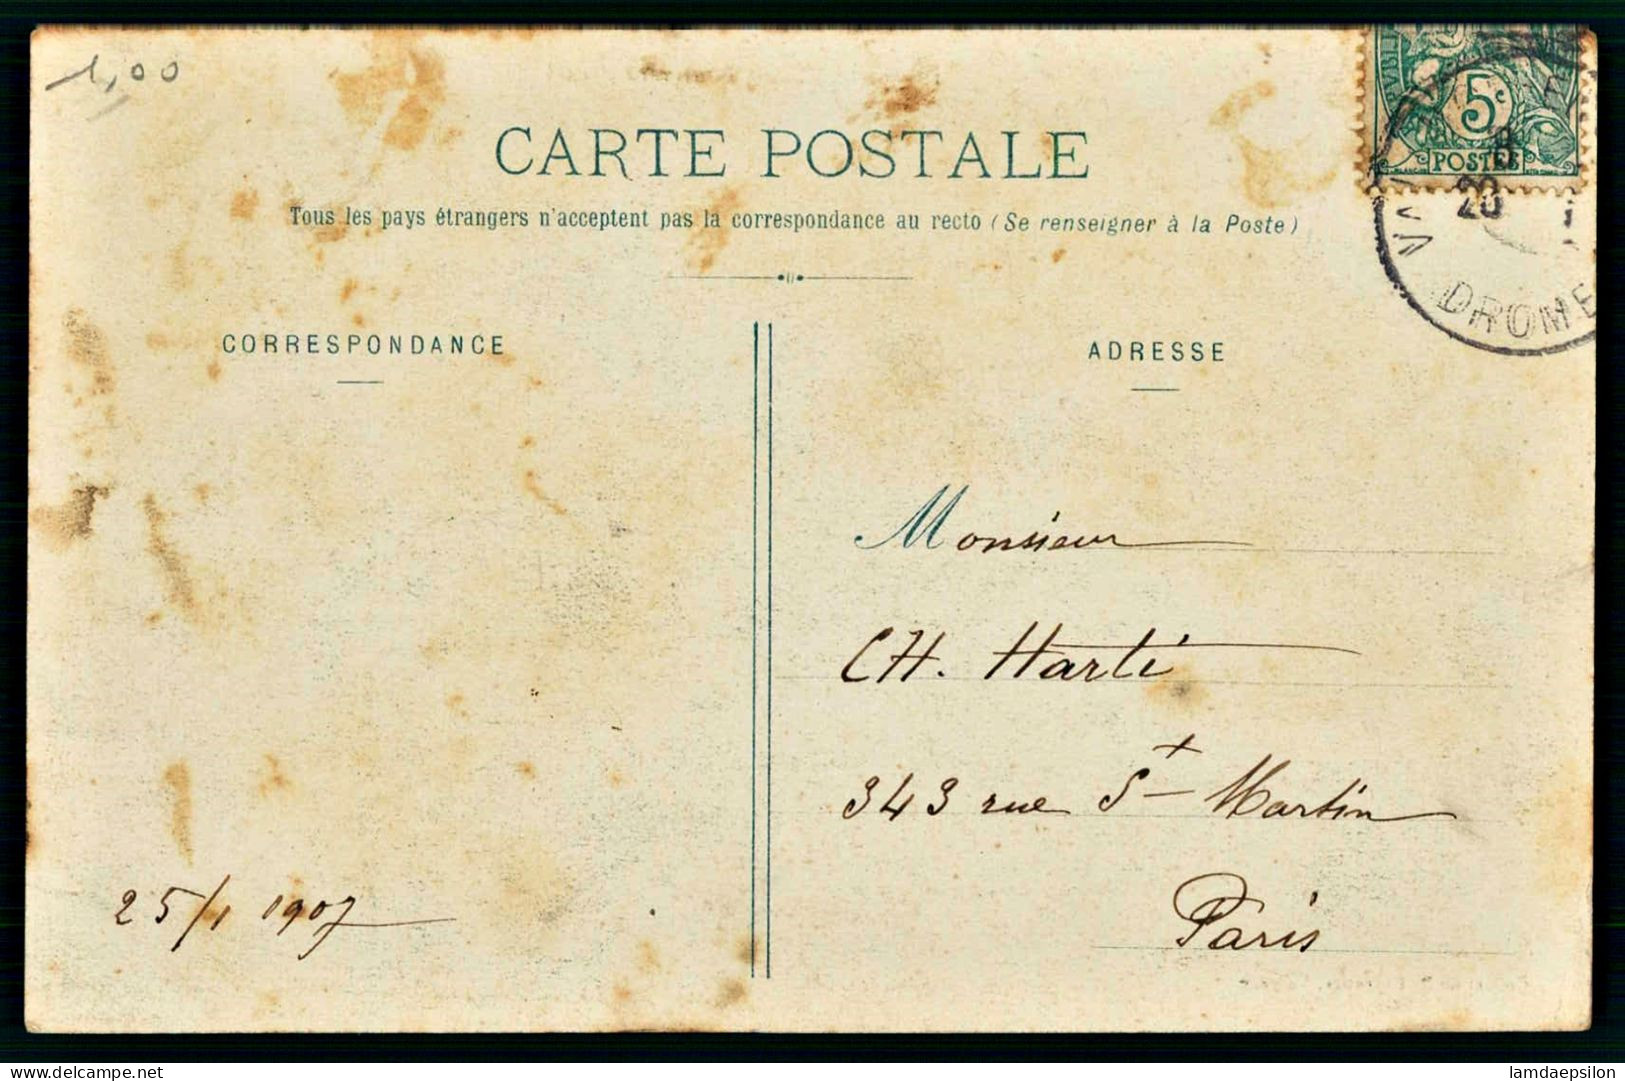 1,00
5c
POSTES
CARTE POSTALE
Tous les pays étrangers n'acceptent pas la correspondance au recto (Se renseigner à la Poste)
DROME
CORRESPONDANCE
ADRESSE
Monsieur
CH. Harti
343 rue St Martin
Paris
25/1 1907
delcampe.net
lamdaepsilon